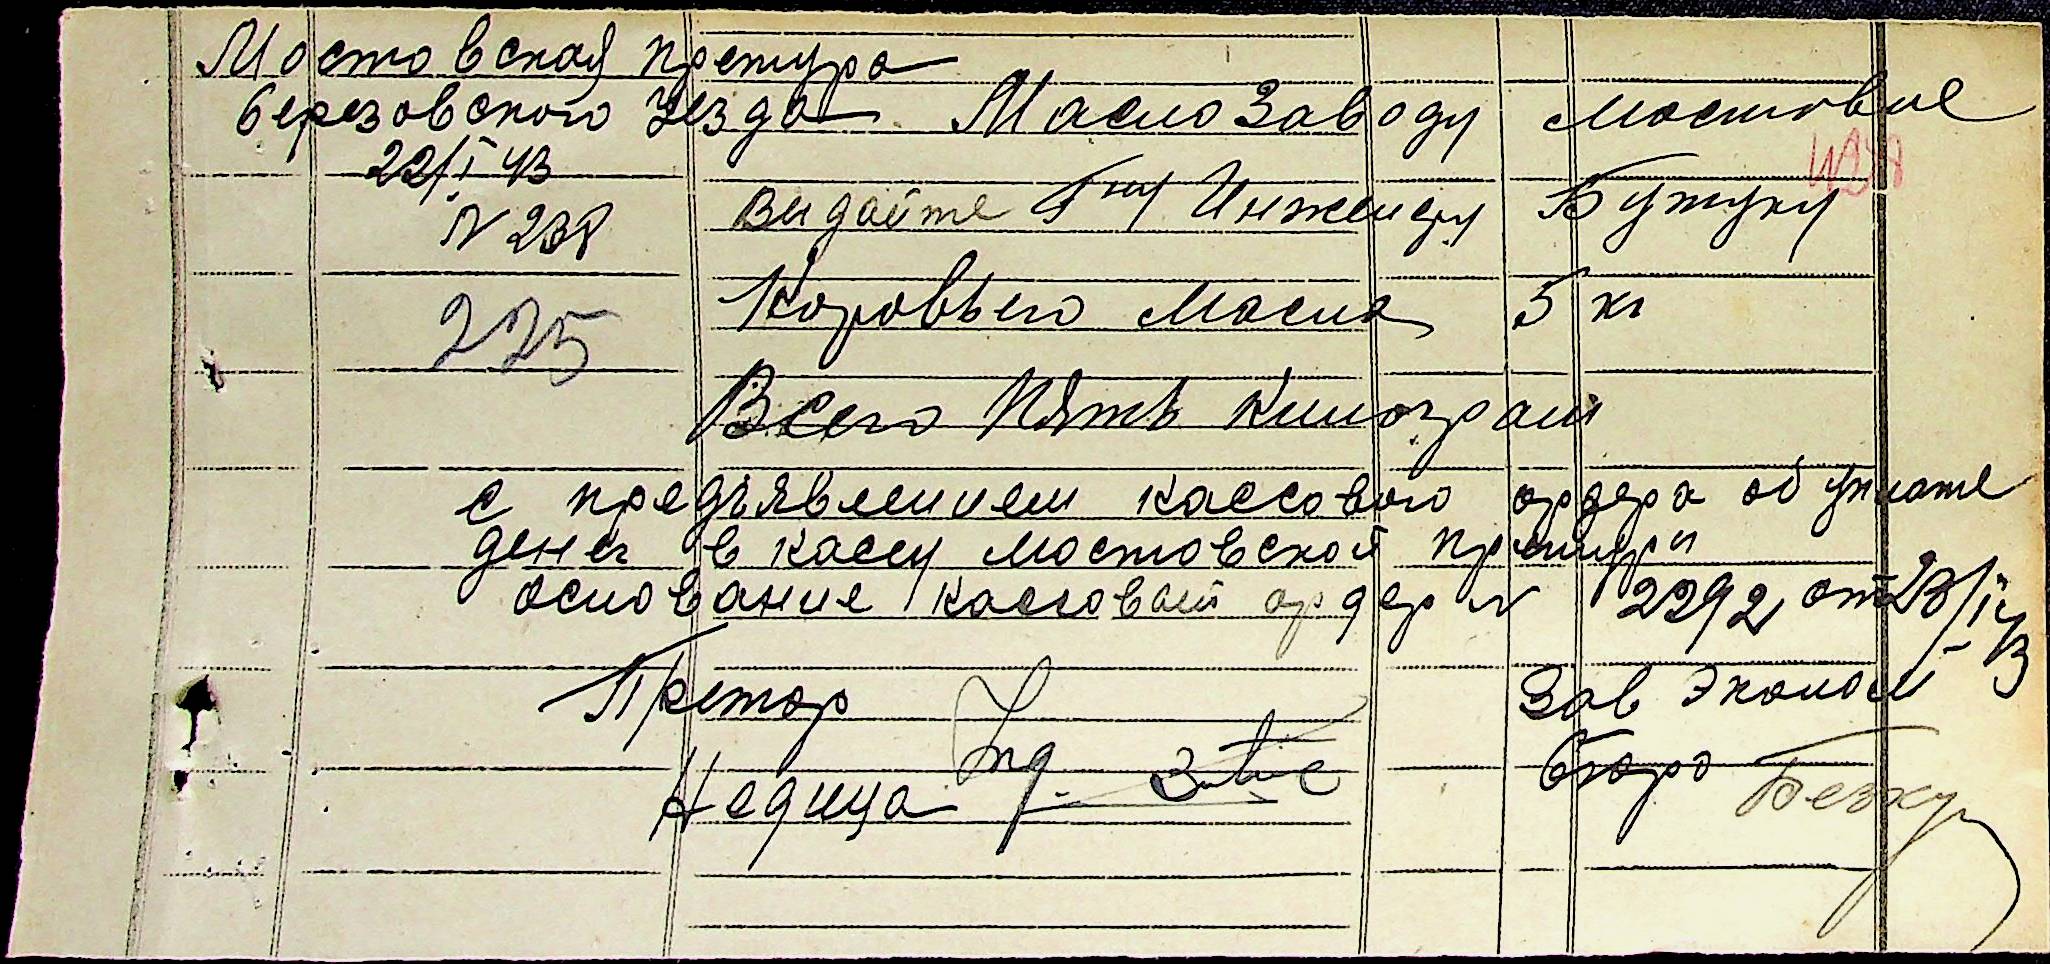 Мостовская претура
березовского уезда Маслозаводу Мостовое
22/I 43
N 238
Выдайте Г-ну Инженеру Бужуку
225
Коровьего масла 5 кг
Всего Пять Килограм
с предъявлением кассового ордера об уплате
денег в кассу Мостовской претуры
основание кассовый ордер N 2292 от 23/I 43
Претор Зав Эконом
Недица бюро